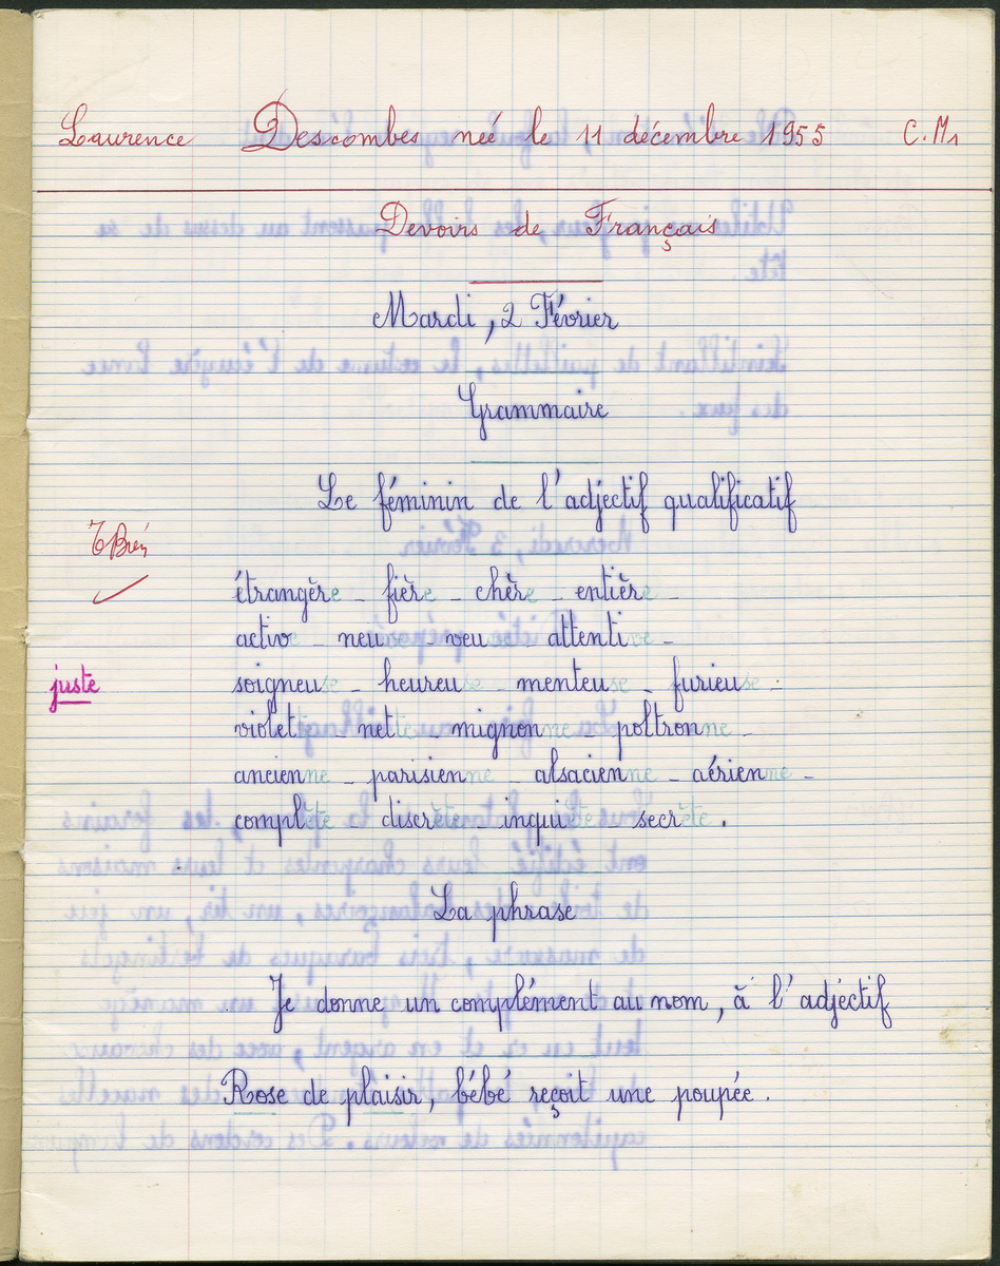 Laurence Descombes née le 11 décembre 1955 C.M1
Devoirs de Français
Mardi, 2 Février
Grammaire
Le féminin de l'adjectif qualificatif
T Bien
étrangère - fière - chère - entière -
active - neuve - veuve attentive -
juste
soigneuse - heureuse - menteuse - furieuse -
violette nette mignonne poltronne -
ancienne - parisienne - alsacienne - aérienne -
complète - discrète - inquiète - secrète.
La phrase
Je donne un complément au nom, à l'adjectif
Rose de plaisir, bébé reçoit une poupée.